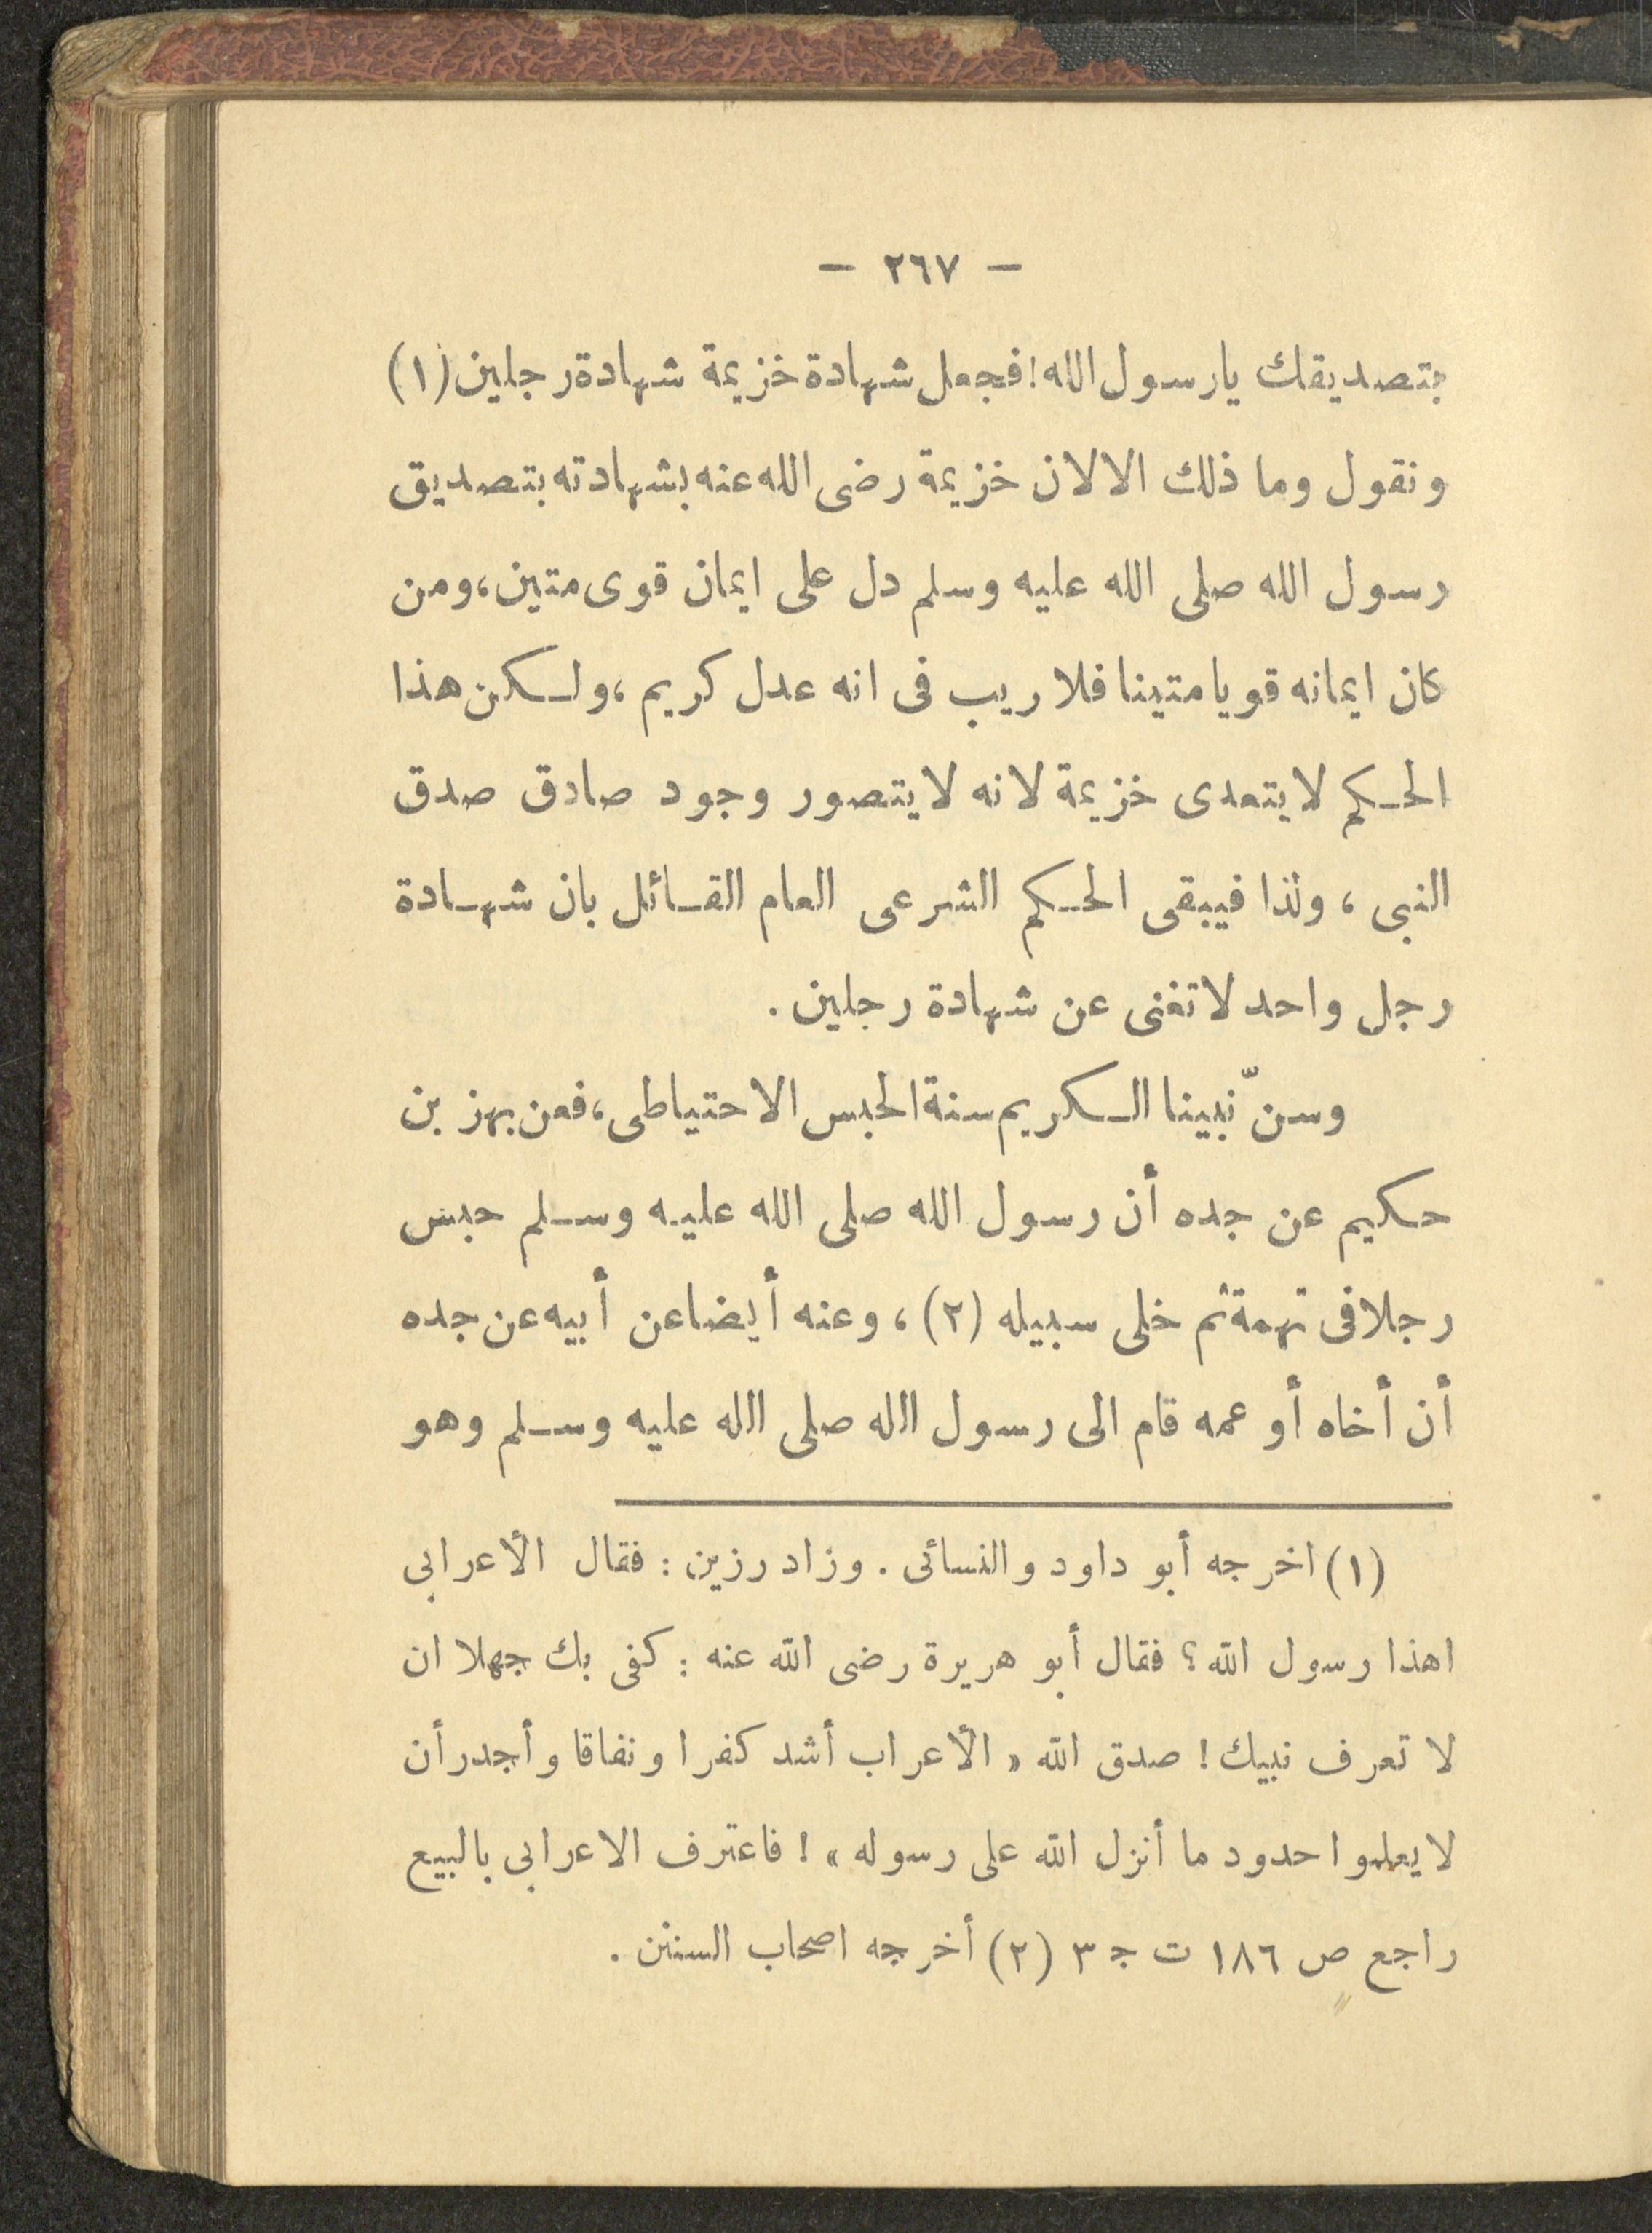 — ٢٦٧ —
بتصديقك يارسول الله! فجعل شهادة خزيمة شهادة رجلين (١)
ونقول وما ذلك الا لان خزيمة رضى الله عنه بشهادته بتصديق
رسول الله صلى الله عليه وسلم دل على ايمان قوى متين، ومن
كان ايمانه قويا متينا فلا ريب فى انه عدل كريم، ولكن هذا
الحكم لا يتعدى خزيمة لانه لا يتصور وجود صادق صدق
النبى، ولذا فيبقى الحكم الشرعى العام القائل بان شهادة
رجل واحد لا تغنى عن شهادة رجلين.
وسنّ نبينا الكريم سنة الحبس الاحتياطى، فعن بهز بن
حكيم عن جده أن رسول الله صلى الله عليه وسلم حبس
رجلا فى تهمة ثم خلى سبيله (٢)، وعنه أيضا عن أبيه عن جده
أن أخاه أو عمه قام الى رسول الله صلى الله عليه وسلم وهو
(١) اخرجه أبو داود والنسائى. وزاد رزين: فقال الأعرابى
اهذا رسول الله؟ فقال أبو هريرة رضى الله عنه: كفى بك جهلا ان
لا تعرف نبيك! صدق الله «الأعراب أشد كفرا ونفاقا وأجدر أن
لا يعلموا حدود ما أنزل الله على رسوله»! فاعترف الاعرابى بالبيع
راجع ص ١٨٦ ت ج ٣ (٢) أخرجه اصحاب السنن.